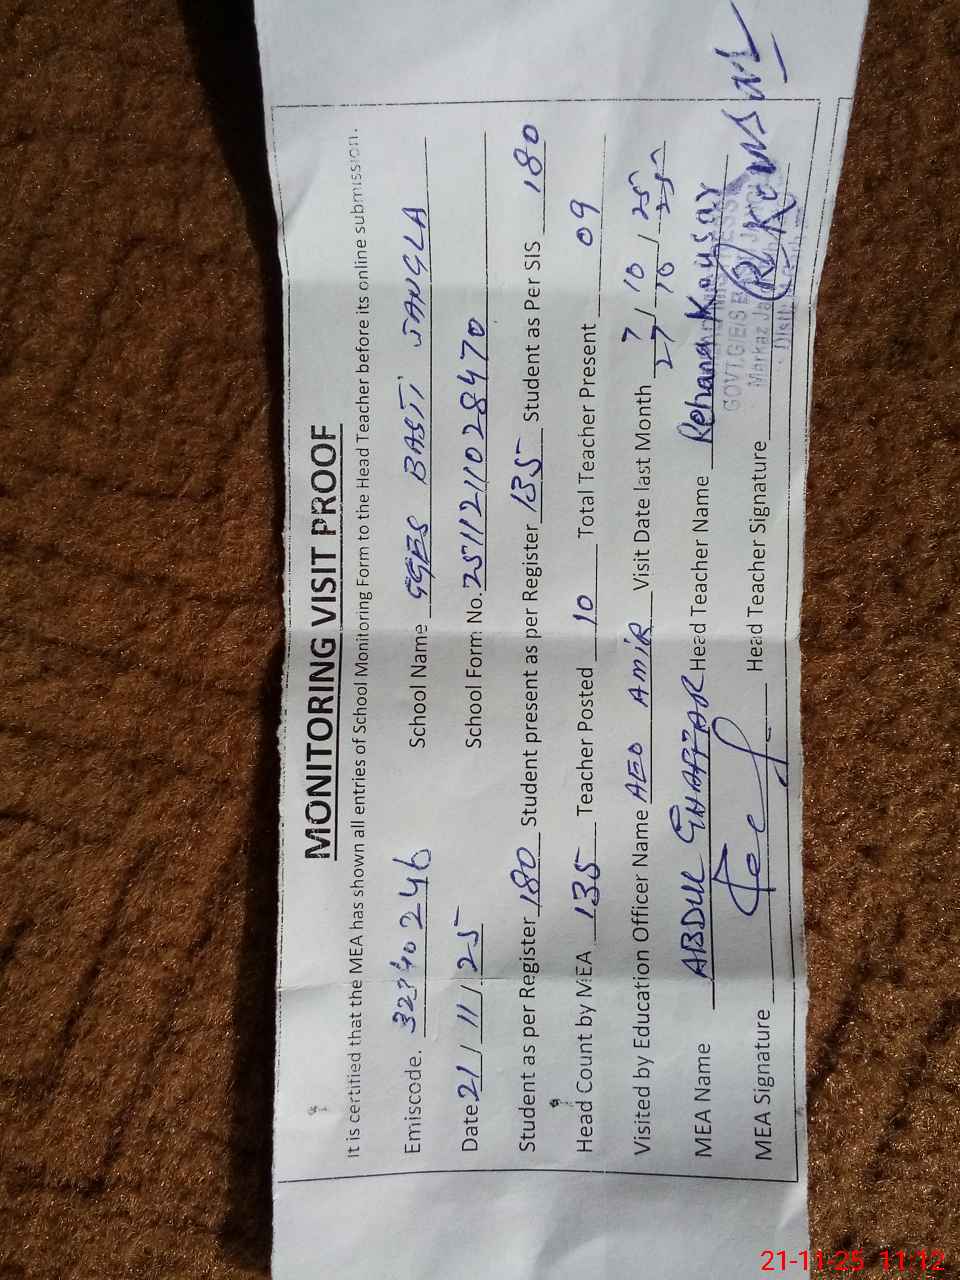 MONITORING VISIT PROOF
It is certified that the MEA has shown all entries of School Monitoring Form to the Head Teacher before its online submission.
Emiscode. 32340246 School Name GGES BASTI JANGLA
Date 21/11/25 School Form No. 2511211028470
Student as per Register 180 Student present as per Register 135 Student as Per SIS 180
Head Count by MEA 135 Teacher Posted 10 Total Teacher Present 09
Visited by Education Officer Name AEO AMIR Visit Date last Month 7/10/25
27/10/25
MEA Name ABDUL GHAFFAR Head Teacher Name Rehana Kousar
MEA Signature Head Teacher Signature R/Kousar
GOVT.G/E/S BASTI
Markaz
21-11-25 11:12